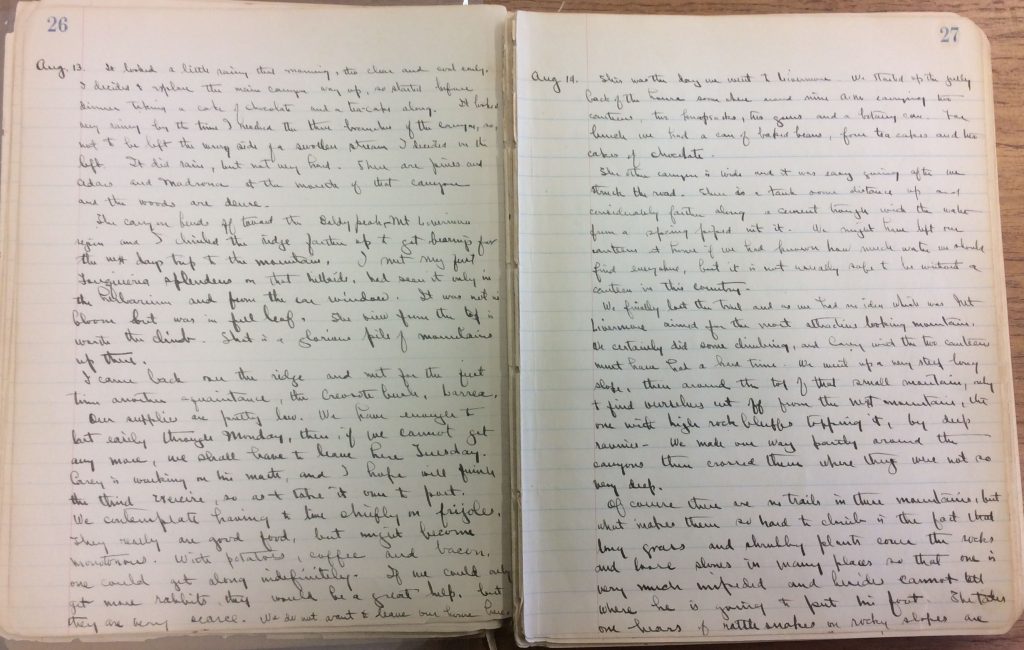 26
Aug. 13. It looked a little rainy this morning, tho clear and cool early.
I decided to explore the main canyon way up, so started before
dinner taking a cake of chocolate and a teacake along. It looked
very rainy by the time I reached the three branches of the canyon, so,
not to be left the wrong side of a swollen stream I decided on the
left. It did rain, but not very hard. There are pines and
cedars and Madrona at the mouth of that canyon
and the woods are dense.
The canyon heads off toward the Baldy peak, Mt Livermore
again and I climbed the ridge farther up to get bearings for
the next days trip to the mountains. I met my first
Fouquieria splendens on that hillside, had seen it only in
the herbarium and from the car window. It was not in
bloom but was in full leaf. The view from the top is
worth the climb. That is a glorious pile of mountains
up there.
I came back over the ridge and met for the first
time another acquaintance, the Creosote bush, Larrea.
Our supplies are pretty low. We have enough to
last easily through Monday, then if we cannot get
any more, we shall have to leave here Tuesday.
Carey is working on his math, and I hope will finish
the third exercise, so as to take it over to post.
We contemplate having to live chiefly on frijoles.
They really are good food, but might become
monotonous. With potatoes, coffee and bacon,
one could get along indefinitely. If we could only
get more rabbits, they would be a great help, but
they are very scarce. We do not want to leave our home here
27
Aug 14. This was the day we went to Livermore. We started up the gully
back of the house some where around nine A.M. carrying two
canteens, two knapsacks, two guns and a botany can. For
lunch we had a can of baked beans, four tea cakes and two
cakes of chocolate.
The other canyon is wide and it was easy going after we
struck the road. There is a tank some distance up and
considerably farther along a cement trough with the water
from a spring piped into it. We might have left our
canteens at home if we had known how much water we should
find everywhere, but it is not usually safe to be without a
canteen in this country.
We finally lost the trail and as we had no idea which was Mt
Livermore aimed for the most attractive looking mountain.
We certainly did some climbing, and Carey with the two canteens
must have had a hard time. We went up a very steep long
slope, then around the top of that small mountain, only
to find ourselves cut off from the next mountains, the
one with high rock bluffs topping it, by deep
ravines - We made our way partly around the
canyons then crossed them where they were not so
very deep.
Of course there are no trails in these mountains, but
what makes them so hard to climb is the fact that
long grass and shrubby plants cover the rocks
and loose stones in many places so that one is
very much impeded and besides cannot tell
where he is going to put his foot. The tales
one hears of rattle snakes on rocky slopes are